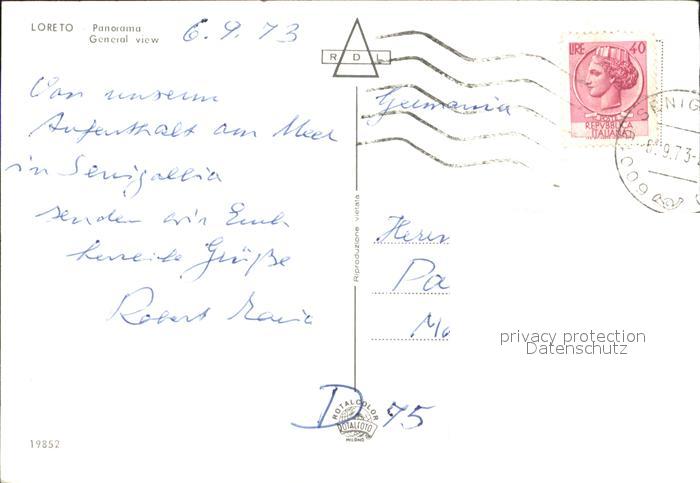 LORETO Panorama
General view
6.9.73
Von unserm
Aufenthalt am Meer
in Senigallia
senden wir Euch
herzliche Grüße
Robert Maria
RDL
Riproduzione vietata
Germania
LIRE 40
POSTE
REPVBBLICA
ITALIANA
SENIG
6.9.73-
600
Herrn
Pa
Mo
privacy protection
Datenschutz
D 75
ROTALCOLOR
ROTALFOTO
MILANO
19852